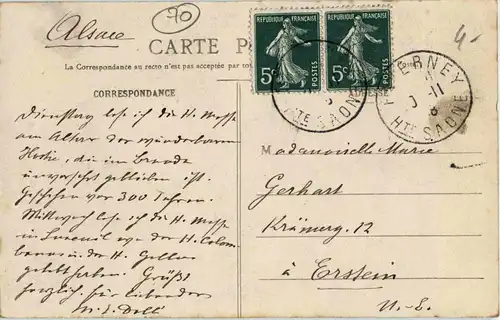 Alsace
70
4.-
CARTE PO
La Correspondance au recto n'est pas acceptée par to
CORRESPONDANCE
ADRESSE
REPUBLIQUE FRANÇAISE
5c
POSTES
REPUBLIQUE FRANÇAISE
5c
POSTES
TE SAONE
ERNEY
HTE SAONE
Dienstag lese ich die H. Messe
am Altar der wunderbaren
Hostie, die im Brande
unversehrt geblieben ist.
Geschehen vor 300 Jahren.
Mittwoch lese ich die H. Messe
in Luxeuil wo der H. Colom-
banus u. der H. Gallus
gelebt haben. Grüßt
herzlich
Mademoiselle Marie
Gerhart
Krämerg. 12
à Erstein
U.-E.